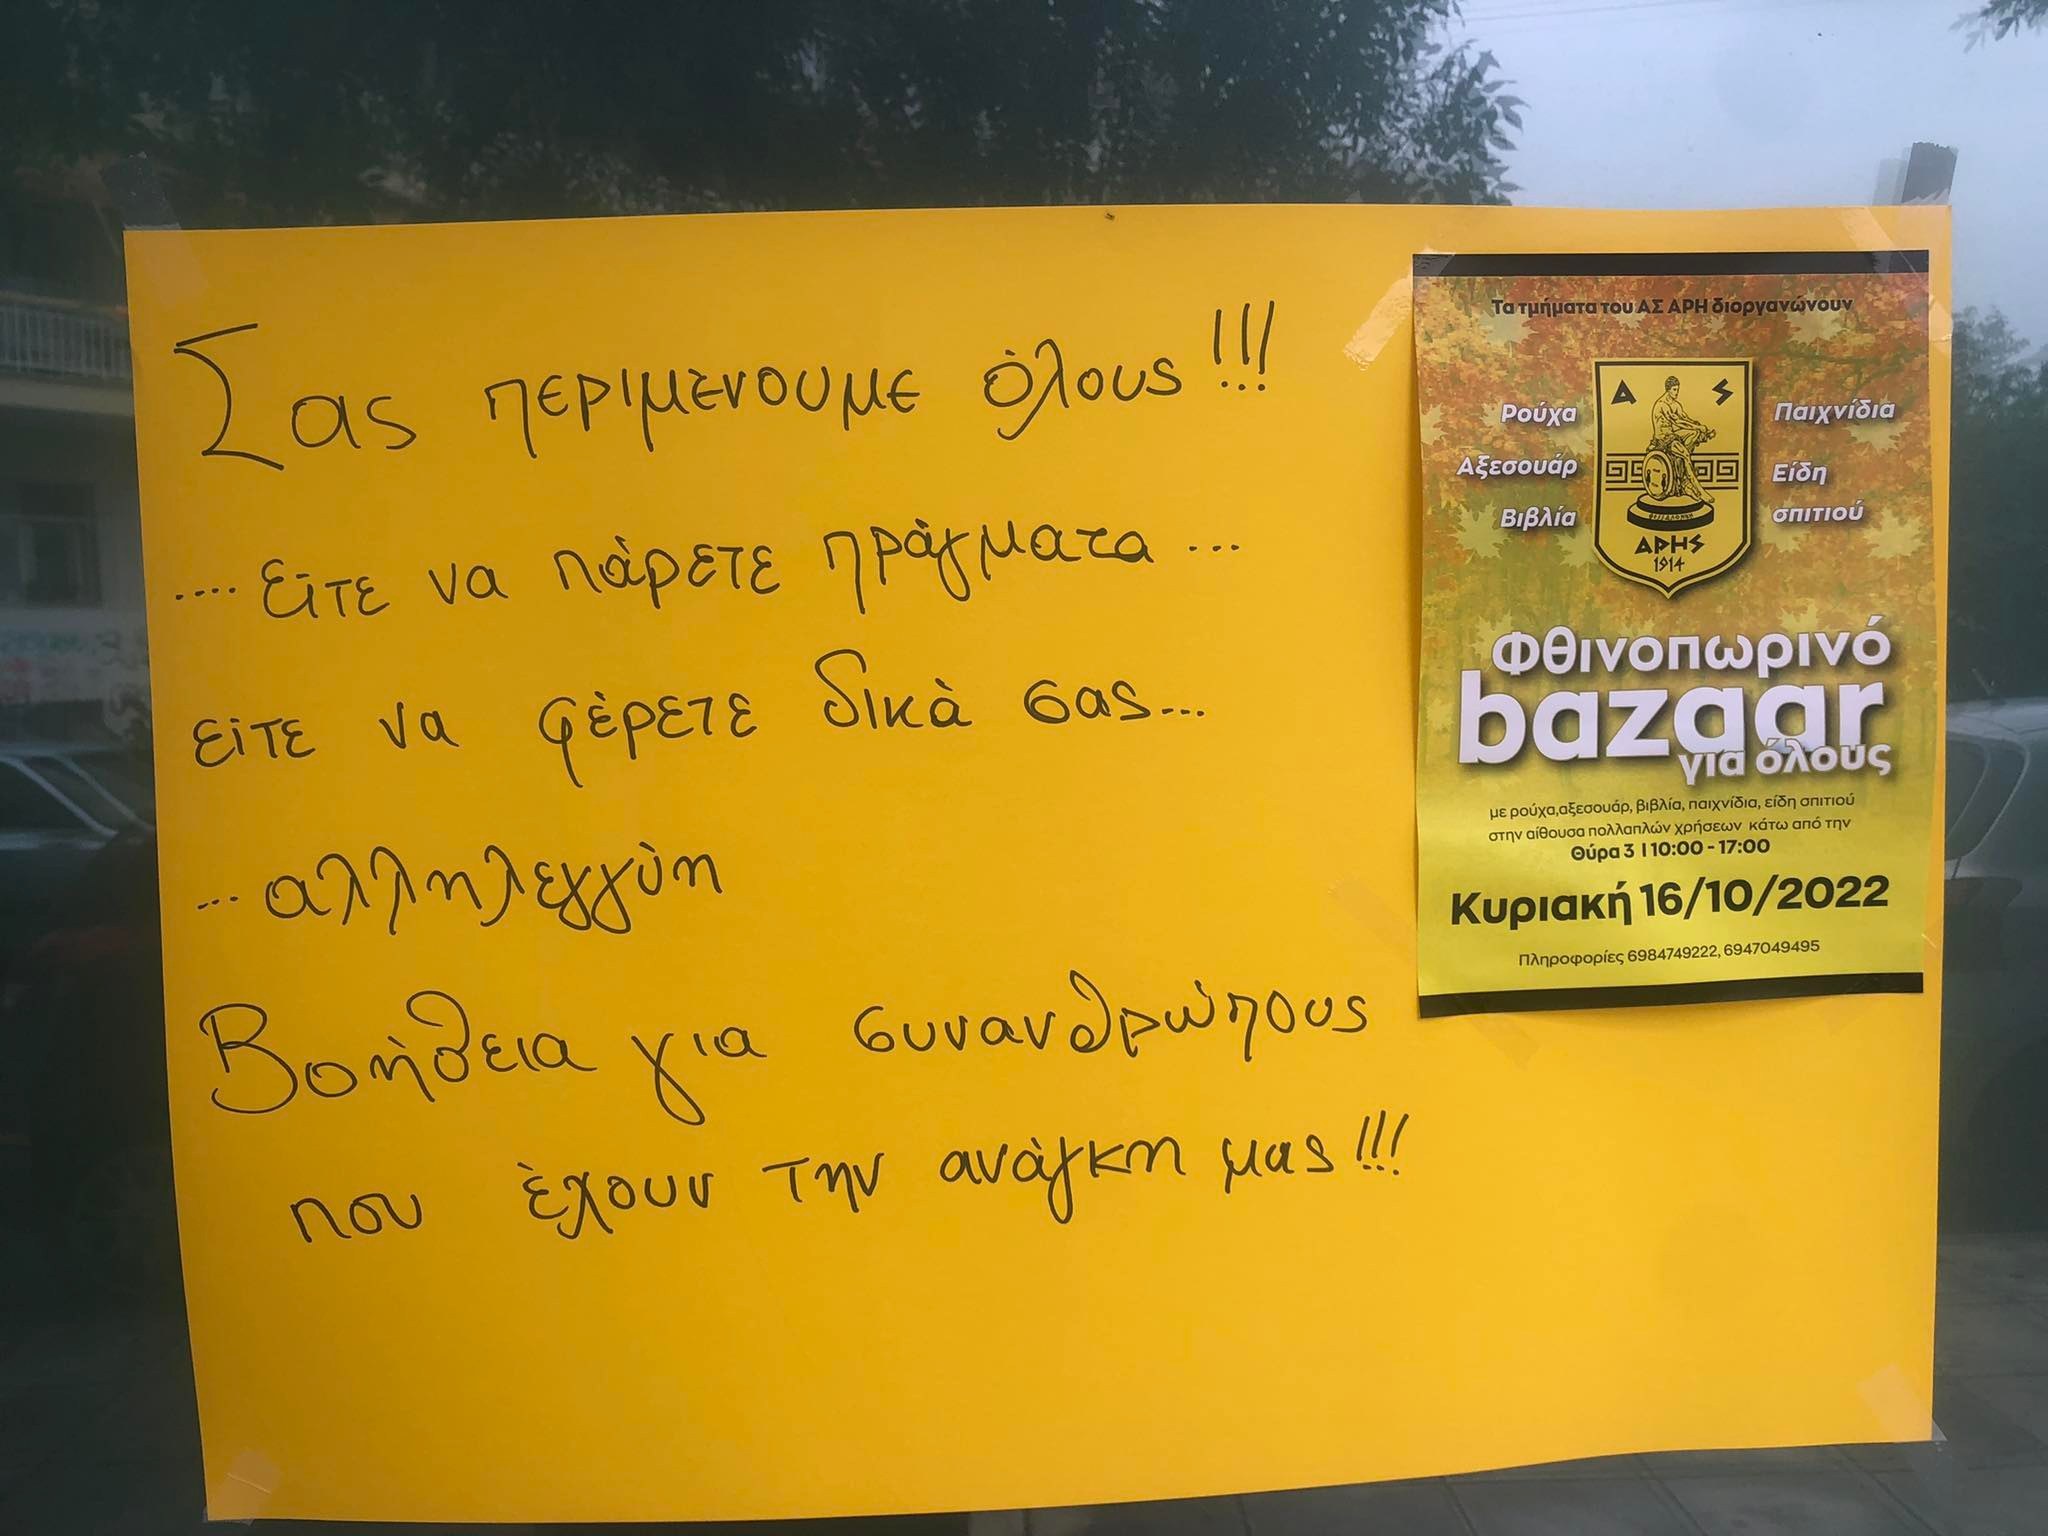 Σας περιμένουμε όλους!!!
.... είτε να πάρετε πράγματα ...
είτε να φέρετε δικά σας...
... αλληλεγγύη
Βοήθεια για συνανθρώπους
που έχουν την ανάγκη μας!!!
Τα τμήματα του ΑΣ ΑΡΗ διοργανώνουν
Α Σ
Ρούχα
Αξεσουάρ
Βιβλία
Παιχνίδια
Είδη
σπιτιού
ΘΕΣΣΑΛΟΝΙΚΗ
ΑΡΗΣ
1914
Φθινοπωρινό
bazaar
για όλους
με ρούχα,αξεσουάρ, βιβλία, παιχνίδια, είδη σπιτιού
στην αίθουσα πολλαπλών χρήσεων κάτω από την
Θύρα 3 | 10:00 - 17:00
Κυριακή 16/10/2022
Πληροφορίες 6984749222, 6947049495